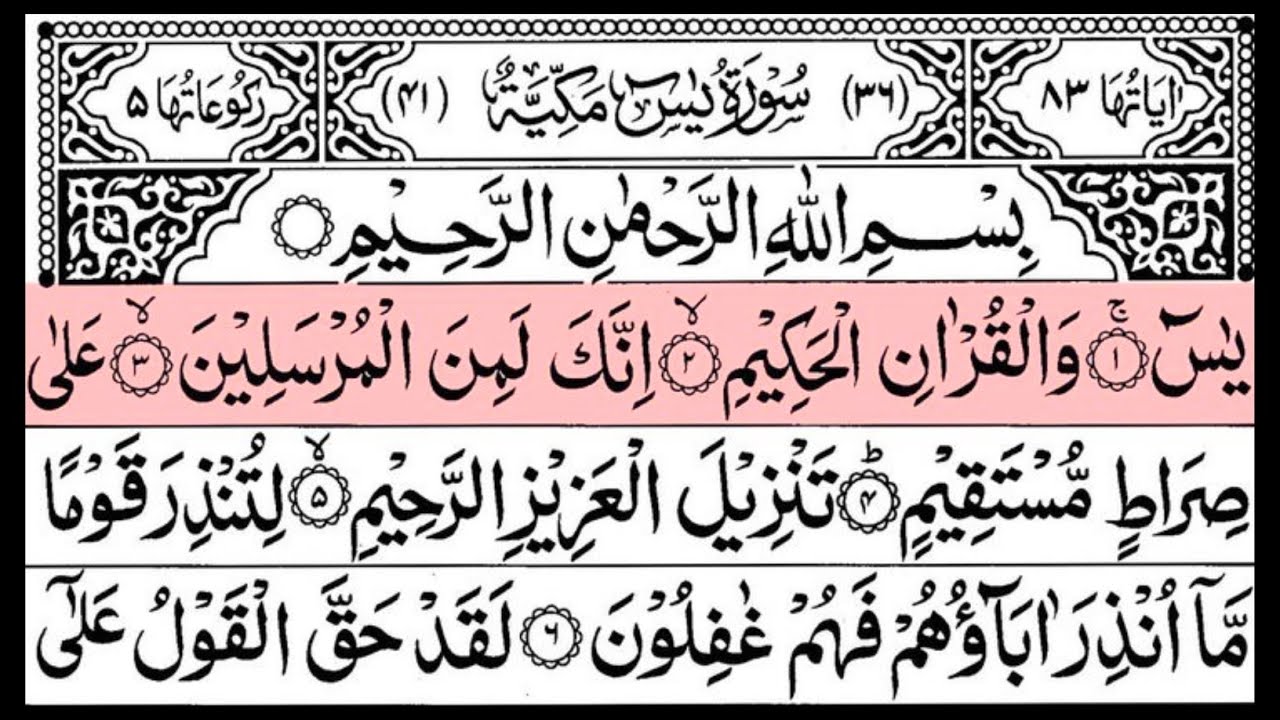 اٰيَاتُهَا ٨٣ (٣٦) سُوْرَةُ يٰسٓ مَكِّيَّةٌ (٤١) رَكُوْعَاتُهَا ٥
بِسْمِ اللّٰهِ الرَّحْمٰنِ الرَّحِيْمِ
يٰسٓ ۚ‏﴿١﴾ وَالْقُرْاٰنِ الْحَكِيْمِ ۙ‏﴿٢﴾ اِنَّكَ لَمِنَ الْمُرْسَلِيْنَ ۙ‏﴿٣﴾ عَلٰى
صِرَاطٍ مُّسْتَقِيْمٍ ؕ‏﴿٤﴾ تَنْزِيْلَ الْعَزِيْزِ الرَّحِيْمِ ۙ‏﴿٥﴾ لِتُنْذِرَ قَوْمًا
مَّاۤ اُنْذِرَ اٰبَآؤُهُمْ فَهُمْ غٰفِلُوْنَ ﴿٦﴾ لَقَدْ حَقَّ الْقَوْلُ عَلٰۤى